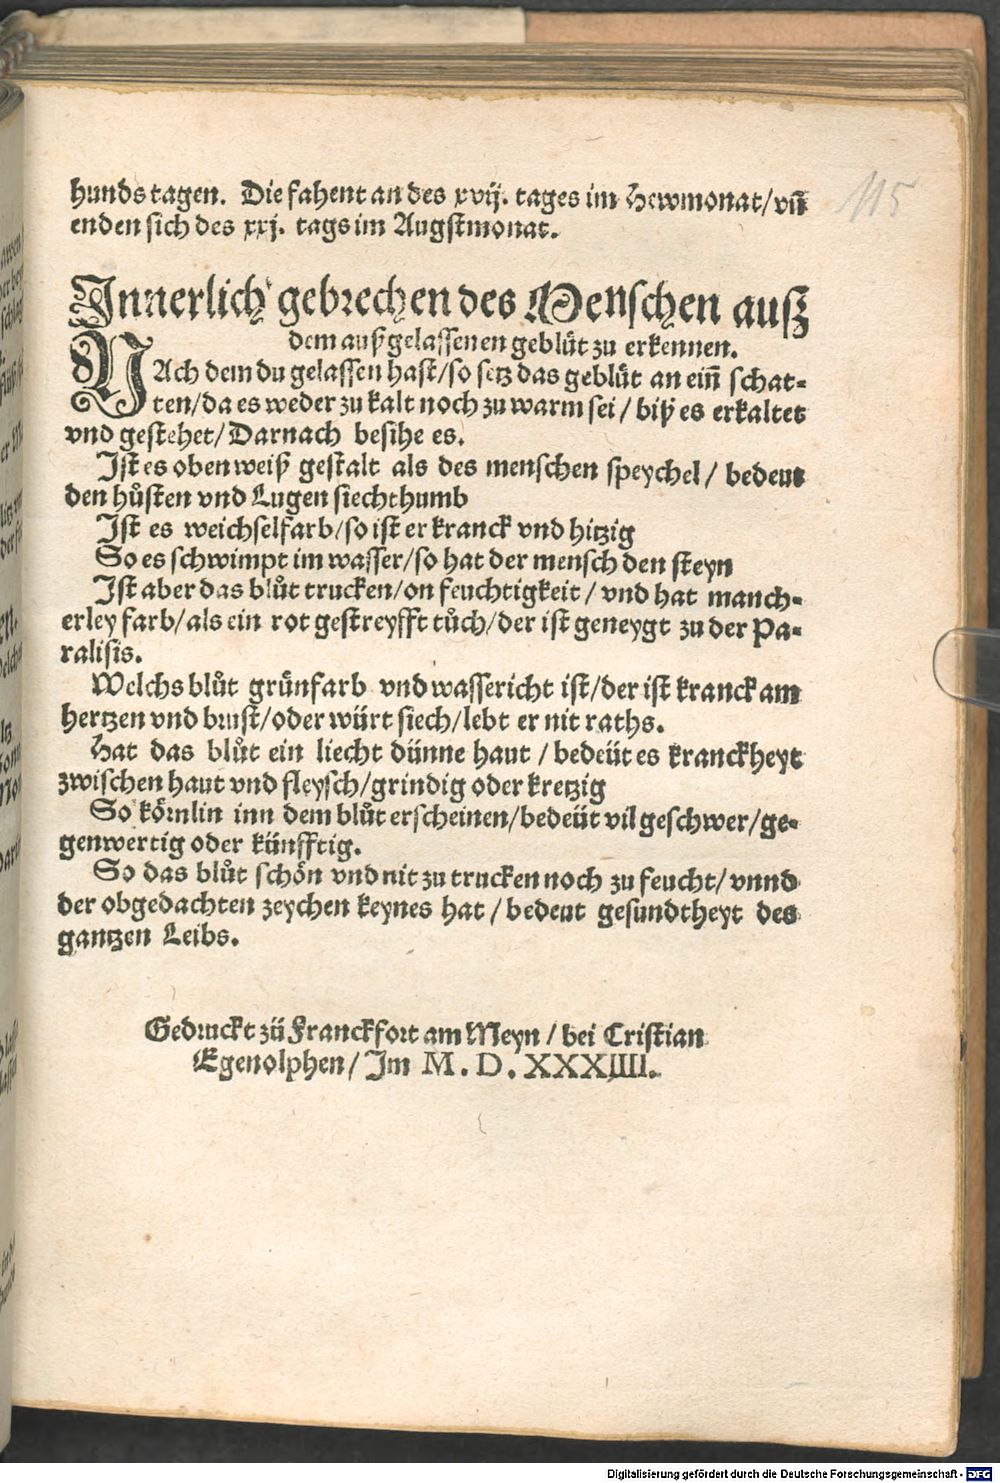 hundstagen. Die fahent an des xvij. tages im Hewmonat/vñ
enden sich des xxj. tags im Augstmonat.
115
Innerlich gebrechen des Menschen auß
dem außgelassenen geblüt zu erkennen.
NAch dem du gelassen hast/so setz das geblüt an ein̄ schat-
ten/da es weder zu kalt noch zu warm sei/biß es erkaltet
vnd gestehet/Darnach besihe es.
Ist es oben weiß gestalt als des menschen speychel/bedeut
den hůsten vnd Lugen siechthumb
Ist es weichselfarb/so ist er kranck vnd hitzig
So es schwimpt im wasser/so hat der mensch den steyn
Ist aber das blůt trucken/on feuchtigkeit/vnd hat manch-
erley farb/als ein rot gestreyfft tůch/der ist geneygt zu der Pa-
ralisis.
Welchs blůt grünfarb vnd wassericht ist/der ist kranck am
hertzen vnd brust/oder würt siech/lebt er nit raths.
Hat das blůt ein liecht dünne haut/bedeüt es kranckheyt
zwischen haut vnd fleysch/grindig oder kretzig
So körnlin inn dem blůt erscheinen/bedeüt vil geschwer/ge-
genwertig oder künfftig.
So das blůt schön vnd nit zu trucken noch zu feucht/vnnd
der obgedachten zeychen keynes hat/bedeut gesundtheyt des
gantzen Leibs.
Gedruckt zü Franckfort am Meyn/bei Cristian
Egenolphen/Im M.D.XXXIIII.
Digitalisierung gefördert durch die Deutsche Forschungsgemeinschaft - DFG